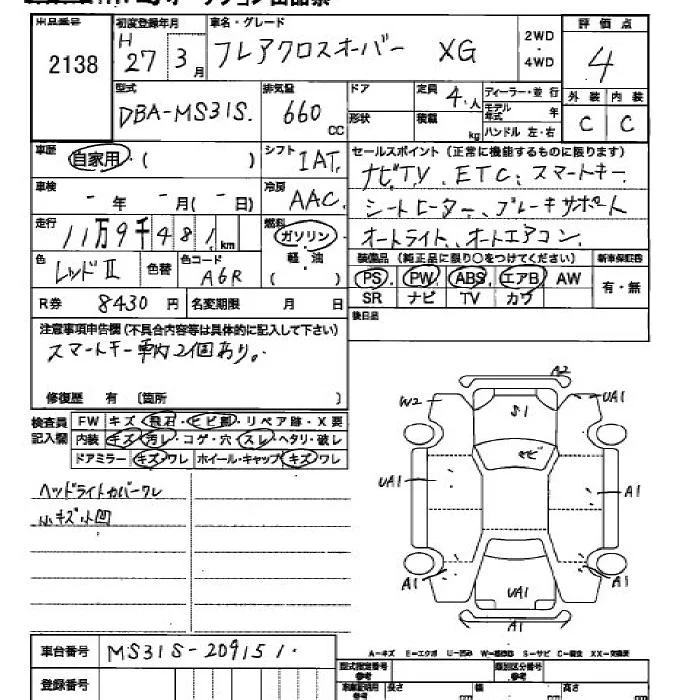 初度登録年月 車名・グレード 評価点
2138 H27 3月 フレアクロスオーバー XG 2WD・4WD 4
型式 排気量 ドア 定員 ディーラー・並行 外装 内装
DBA-MS31S. 660CC 形状 4.人 積載 kg モデル年式 年 ハンドル 左・右 C C
車歴 自家用・( ) シフト IAT. セールスポイント(正常に機能するものに限ります)
ナビTV. ETC. スマートキー.
車検 - 年 - 月(- 日) 冷房 AAC.
シートヒーター、ブレーキサポート
走行 11万9千481km 燃料 ガソリン・軽・油 ( )
オートライト、オートエアコン.
色 レッドII 色替 色コード A6R 装備品(純正品に限り○をつけてください) 新車保証書
PS. PW. ABS. エアB AW 有・無
R券 8430円 名変期限 月 日 SR ナビ TV カワ
注意事項申告欄(不具合内容等は具体的に記入して下さい) 後日品
スマートキー車内2個あり。
修復歴 有 〔箇所 〕
検査員記入欄 FW キズ・飛石・ヒビ割・リペア跡・X要
内装 キズ・汚レ・コゲ・穴・スレ・ヘタリ・破レ
ドアミラー キズ・ワレ ホイール・キャップ キズ・ワレ
ヘッドライトカバーワレ
小キズ小凹
A2
W2 UA1
S1
UA1 A1
A1 A1
UA1
A1
A-キズ E-エクボ U-凹み S-サビ
車台番号 MS31S-209151.
登録番号 型式指定番号 類別区分番号
長さ 幅 高さ